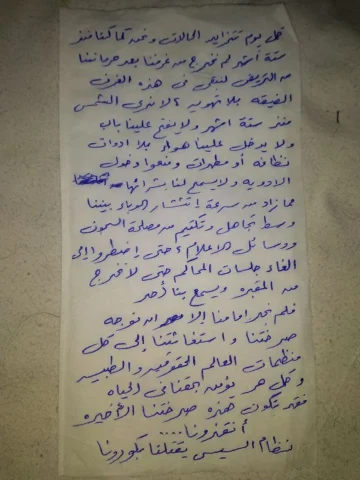 كل يوم تتزايد الحالات ونحن كما كنا منذ
ستة أشهر لم نخرج من غرفنا بعد حرماننا
من التريض لنبقى فى هذه الغرف
الضيقه بلا تهويه ولا نرى الشمس
منذ ستة اشهر ولا يفتح علينا باب
ولا يدخل علينا هواء بلا ادوات
نظافه أو مطهرات ومنعوا دخول
الادويه ولا يسمح لنا بشرائها
مما زاد من سرعة إنتشار الوباء بيننا
وسط تجاهل وتكتيم من مصلحة السجون
ووسائل الاعلام حتى إضطروا إلى
الغاء جلسات المحاكم حتى لا نخرج
من المقبره ويسمع بنا أحد
فلم نجد امامنا إلا ان نوجه
صرختنا و استغاثتنا إلى كل
منظمات العالم الحقوقيه والطبيه
وكل حر يؤمن بحقنا فى الحياه
فقد تكون هذه صرختنا الأخيره
أنقذونا ....
نظام السيسى يقتلنا بكورونا